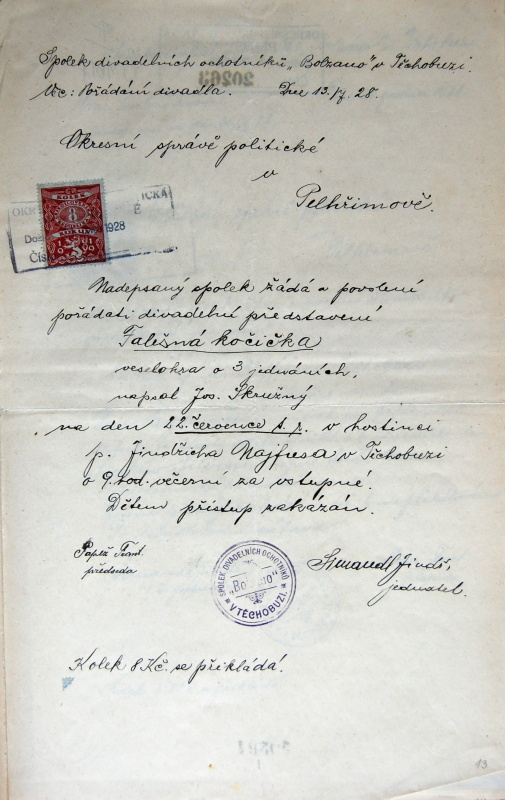 Spolek divadelních ochotníků „Bolzano" v Těchobuzi.
20263
Věc: Pořádání divadla. Dne 13./7. 28.
Okresní správě politické
v
Pelhřimově.
1928
KOLEK
8
Nadepsaný spolek žádá o povolení
pořádati divadelní představení
Falešná kočička
veselohra o 3 jednáních,
napsal Jos. Skružný
na den 22. července t. r. v hostinci
p. Jindřicha Najfusa v Těchobuzi
o 9. hod. večerní za vstupné.
Dětem přístup zakázán.
předseda
jednatel.
SPOLEK DIVADELNÍCH OCHOTNÍKŮ
V TĚCHOBUZI.
Kolek 8 Kč. se přikládá.
13